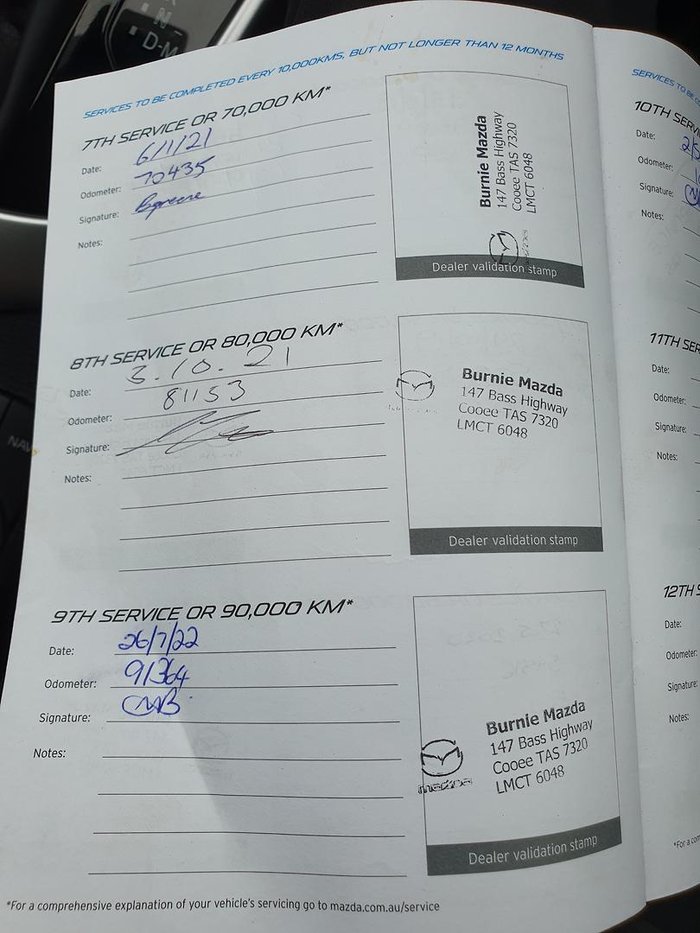 N
D-M
NAV
SERVICES TO BE COMPLETED EVERY 10,000KMS, BUT NOT LONGER THAN 12 MONTHS
7TH SERVICE OR 70,000 KM*
Date: 6/1/21
Odometer: 70435
Signature:
Notes:
Burnie Mazda
147 Bass Highway
Cooee TAS 7320
LMCT 6048
Dealer validation stamp
8TH SERVICE OR 80,000 KM*
Date: 3.10.21
Odometer: 81153
Signature:
Notes:
Burnie Mazda
147 Bass Highway
Cooee TAS 7320
LMCT 6048
Dealer validation stamp
9TH SERVICE OR 90,000 KM*
Date: 26/7/22
Odometer: 91364
Signature: CMB
Notes:
mazda
Burnie Mazda
147 Bass Highway
Cooee TAS 7320
LMCT 6048
Dealer validation stamp
*For a comprehensive explanation of your vehicle's servicing go to mazda.com.au/service
SERVICES TO BE
10TH SERV
Date:
Odometer:
Signature:
Notes:
11TH SER
Date:
Odometer:
Signature:
Notes:
12TH S
Date:
Odometer:
Signature:
Notes:
*For a com